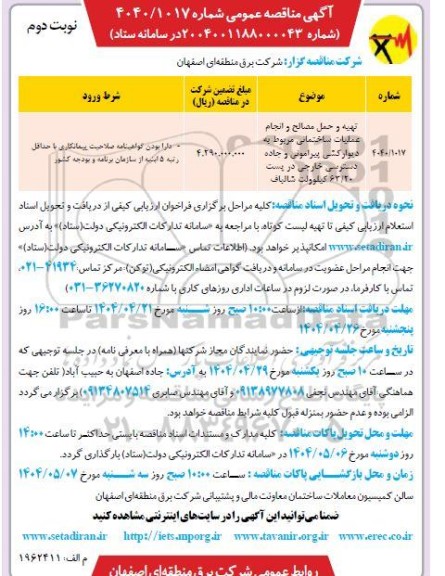 آگهی مناقصه عمومی شماره ۴۰۴۰/۱۰۱۷
(شماره ۲۰۰۴۰۰۱۱۸۸۰۰۰۰۴۳ در سامانه ستاد)
نوبت دوم
شرکت مناقصه گزار: شرکت برق منطقه‌ای اصفهان
شماره
موضوع
مبلغ تضمین شرکت در مناقصه (ریال)
شرط ورود
۴۰۴۰/۱۰۱۷
تهیه و حمل مصالح و انجام
عملیات ساختمانی مربوط به
دیوارکشی پیرامونی و جاده
دسترسی خارجی در پست
۶۳/۲۰ کیلوولت شالباف
۴,۲۹۰,۰۰۰,۰۰۰
- دارا بودن گواهینامه صلاحیت پیمانکاری با حداقل
رتبه ۵ ابنیه از سازمان برنامه و بودجه کشور
نحوه دریافت و تحویل اسناد مناقصه: کلیه مراحل برگزاری فراخوان ارزیابی کیفی از دریافت و تحویل اسناد
استعلام ارزیابی کیفی تا تهیه لیست کوتاه، با مراجعه به «سامانه تدارکات الکترونیکی دولت(ستاد)» به آدرس
www.setadiran.ir امکانپذیر خواهد بود. (اطلاعات تماس «سـامانه تدارکات الکترونیکی دولت(ستاد)»
جهت انجام مراحل عضویت در سامانه و دریافت گواهی امضاء الکترونیکی(توکن): مرکز تماس: ۴۱۹۳۴-۰۲۱،
تماس با کارفرما، در صورت لزوم در ساعات اداری روزهای کاری با شماره ۳۶۲۷۰۸۲۰-۰۳۱)
مهلت دریافت اسناد مناقصه: از ساعت ۱۰:۰۰ صبح روز شـنبه مورخ ۱۴۰۴/۰۴/۲۱ تا ساعت ۱۶:۰۰ روز
پنجشنبه مورخ ۱۴۰۴/۰۴/۲۶
تاریخ و ساعت جلسه توجیهی: حضور نمایندگان مجاز شرکتها (همراه با معرفی نامه) در جلسه توجیهی که
در ساعت ۱۰ صبح روز یکشنبه مورخ ۱۴۰۴/۰۴/۲۹ به آدرس: جاده اصفهان به حبیب آباد( تلفن جهت
هماهنگی آقای مهندس نجفی ۰۹۱۳۸۹۷۷۸۰۸ و آقای مهندس صابری ۰۹۱۳۴۸۰۷۵۱۴) برگزار می گردد
الزامی بوده و عدم حضور بمنزله قبول کلیه شرایط مناقصه خواهد بود.
مهلت و محل تحویل پاکات مناقصه: کلیه مدارک و مستندات اسناد مناقصه بایستی حداکثر تا ساعت ۱۴:۰۰
روز دوشنبه مورخ ۱۴۰۴/۰۵/۰۶ در «سامانه تدارکات الکترونیکی دولت(ستاد) بارگذاری گردد.
زمان و محل بازگشـایی پاکات مناقصه : ساعت ۱۰:۰۰ صبح روز سه شـنبه مورخ ۱۴۰۴/۰۵/۰۷
سالن کمیسیون معاملات ساختمان معاونت مالی و پشتیبانی شرکت برق منطقه‌ای اصفهان
ضمنا می‌توانید این آگهی را در سایت‌های اینترنتی مشاهده کنید
www.setadiran.ir http://iets.mporg.ir www.tavanir.org.ir www.erec.co.ir
م الف: ۱۹۶۲۴۱۱
روابط عمومی شرکت برق منطقه‌ای اصفهان